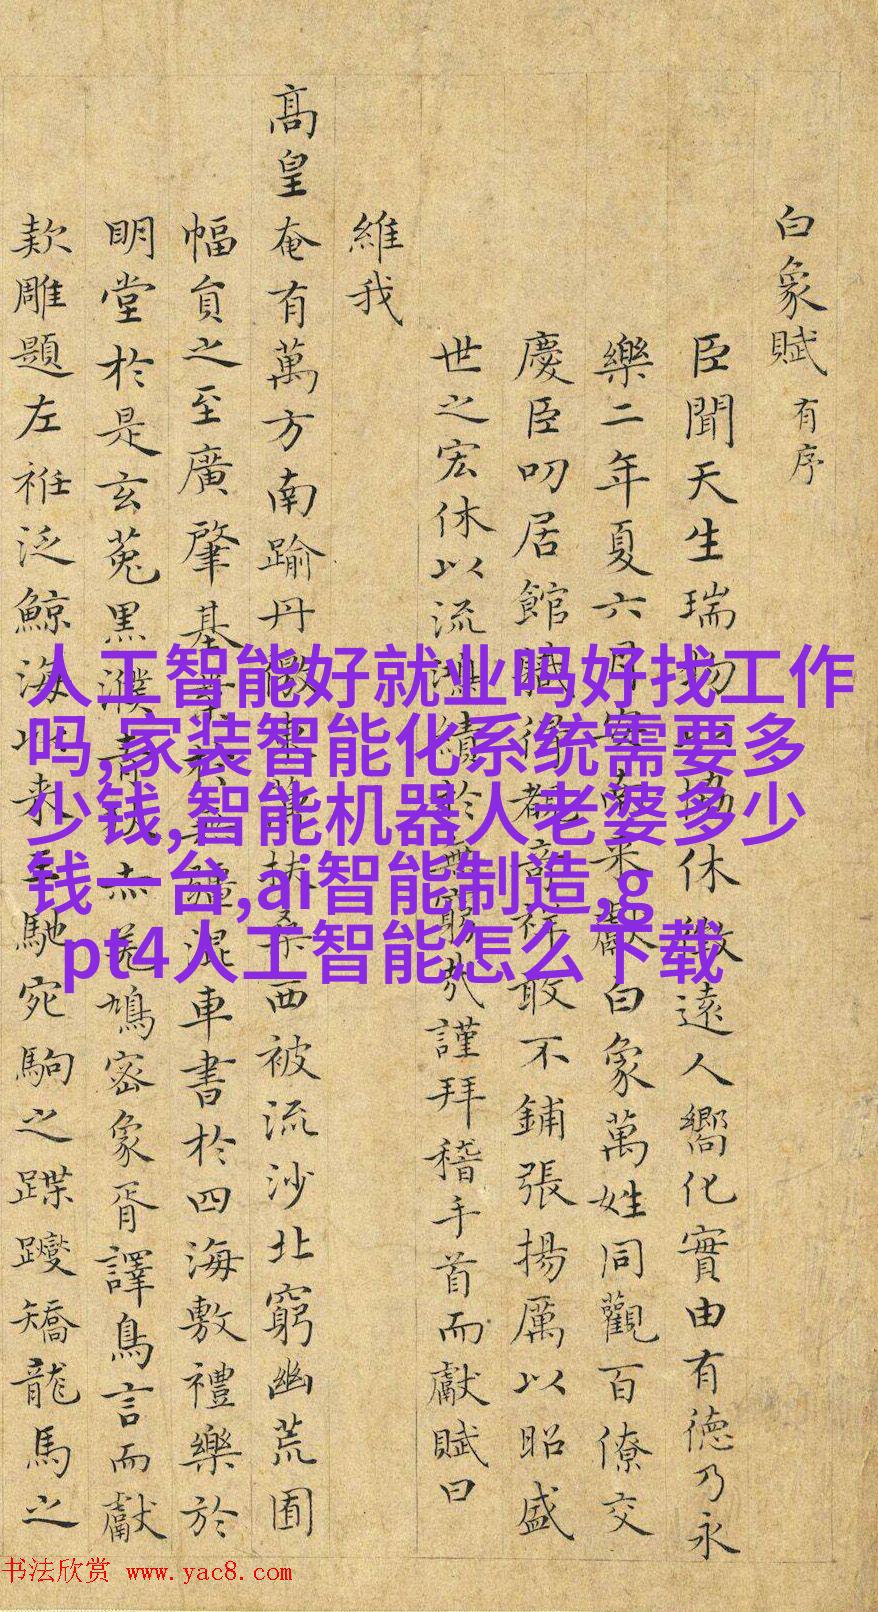 白象賦 有序
臣聞天生瑞物協休徵遠人嚮化實由有德乃永
樂二年夏六月安南來獻白象萬姓同觀百僚交
慶臣叨居館職得覩奇祥敢不鋪張揚厲以昭盛
世之宏休以流鴻績於無窮哉謹拜稽手首而獻賦曰
維我
高皇奄有萬方南踰丹徼東薄扶桑西被流沙北窮幽荒
幅員之至廣肇基混車書於四海敷禮樂於
明堂於是玄菟黑濮青鳩密象胥譯鳥言而獻
款雕題左袵泛鯨海以來王馳宛駒之蹀躞矯龍馬之
人工智能好就业吗好找工作
吗,家装智能化系统需要多
少钱,智能机器人老婆多少
钱一台,ai智能制造,g
pt4人工智能怎么下载
书法欣赏 www.yac8.com